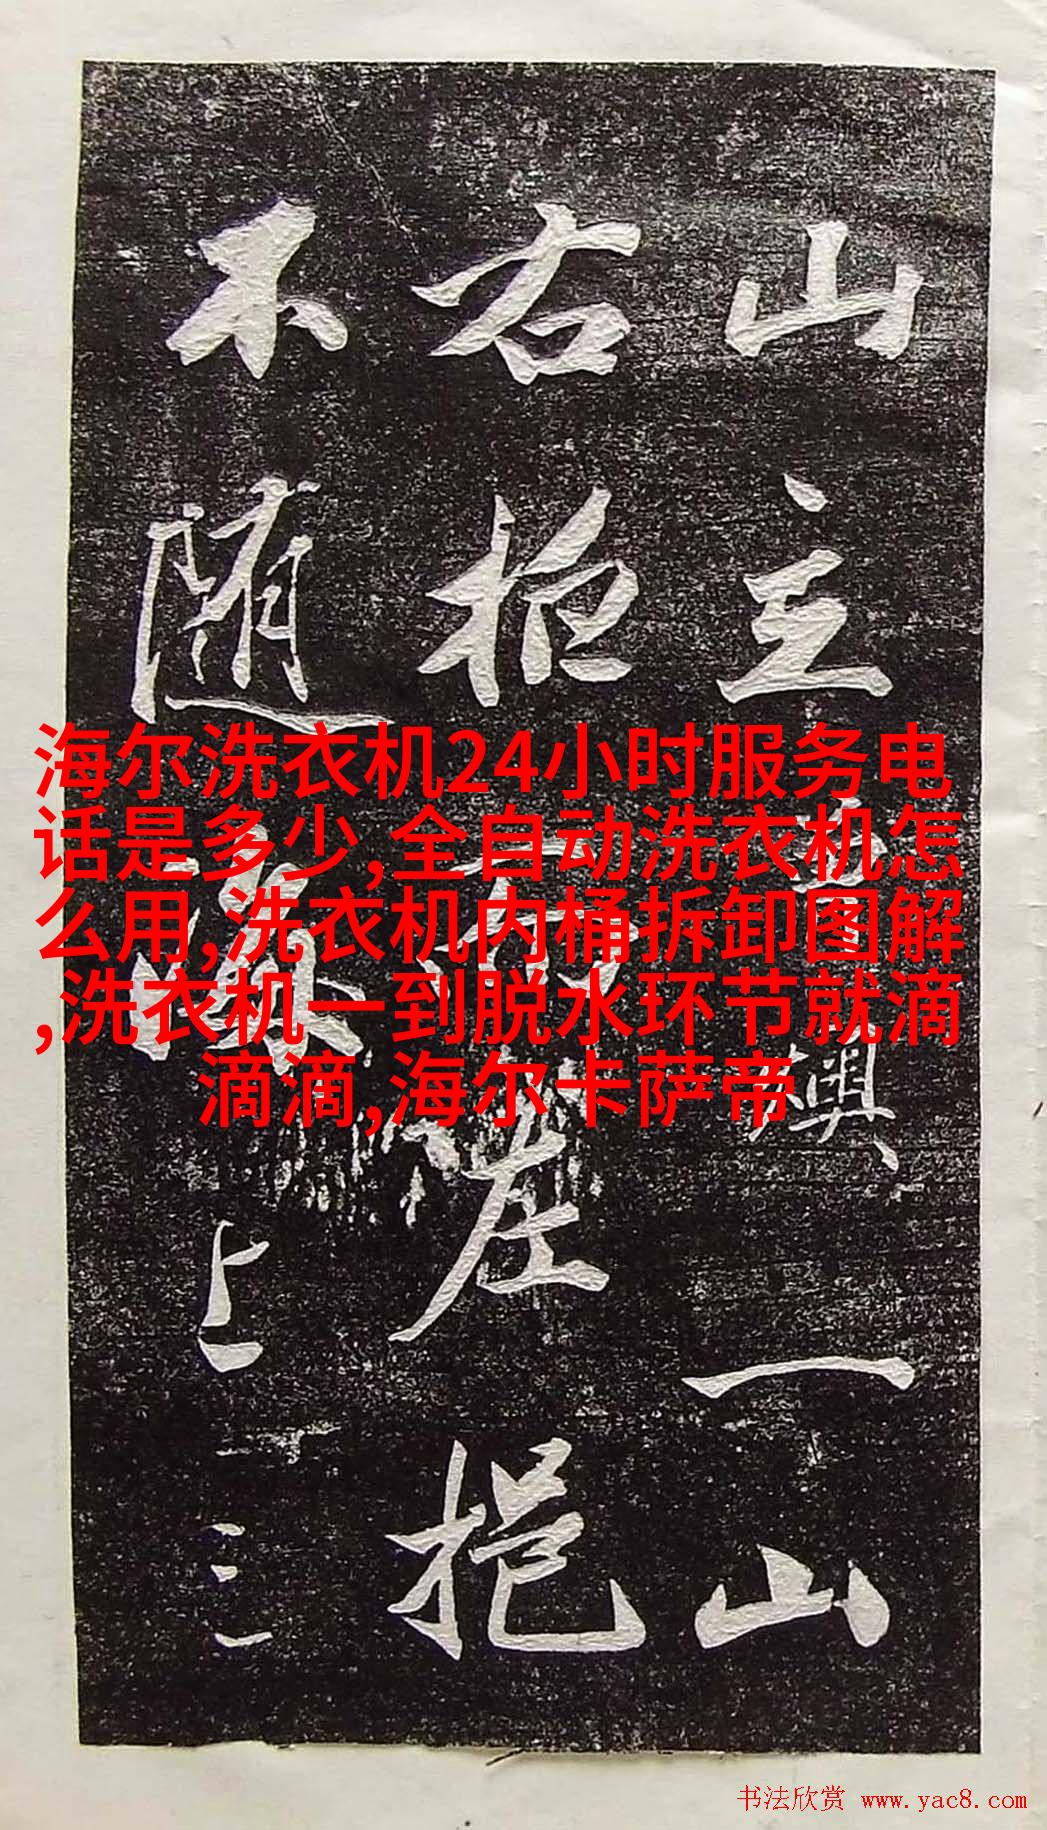 山主
奥、一山
右拖
左挹
不随
上三
海尔洗衣机24小时服务电
话是多少,全自动洗衣机怎
么用,洗衣机内桶拆卸图解
,洗衣机一到脱水环节就滴
滴滴,海尔卡萨帝
书法欣赏 www.yac8.com